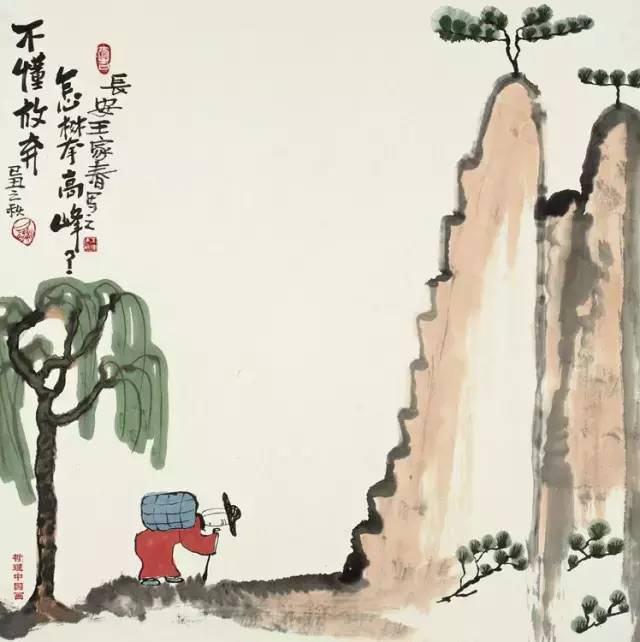 不懂放弃
怎攀高峰？
己丑之秋
長安王家春写之
哲理中国画